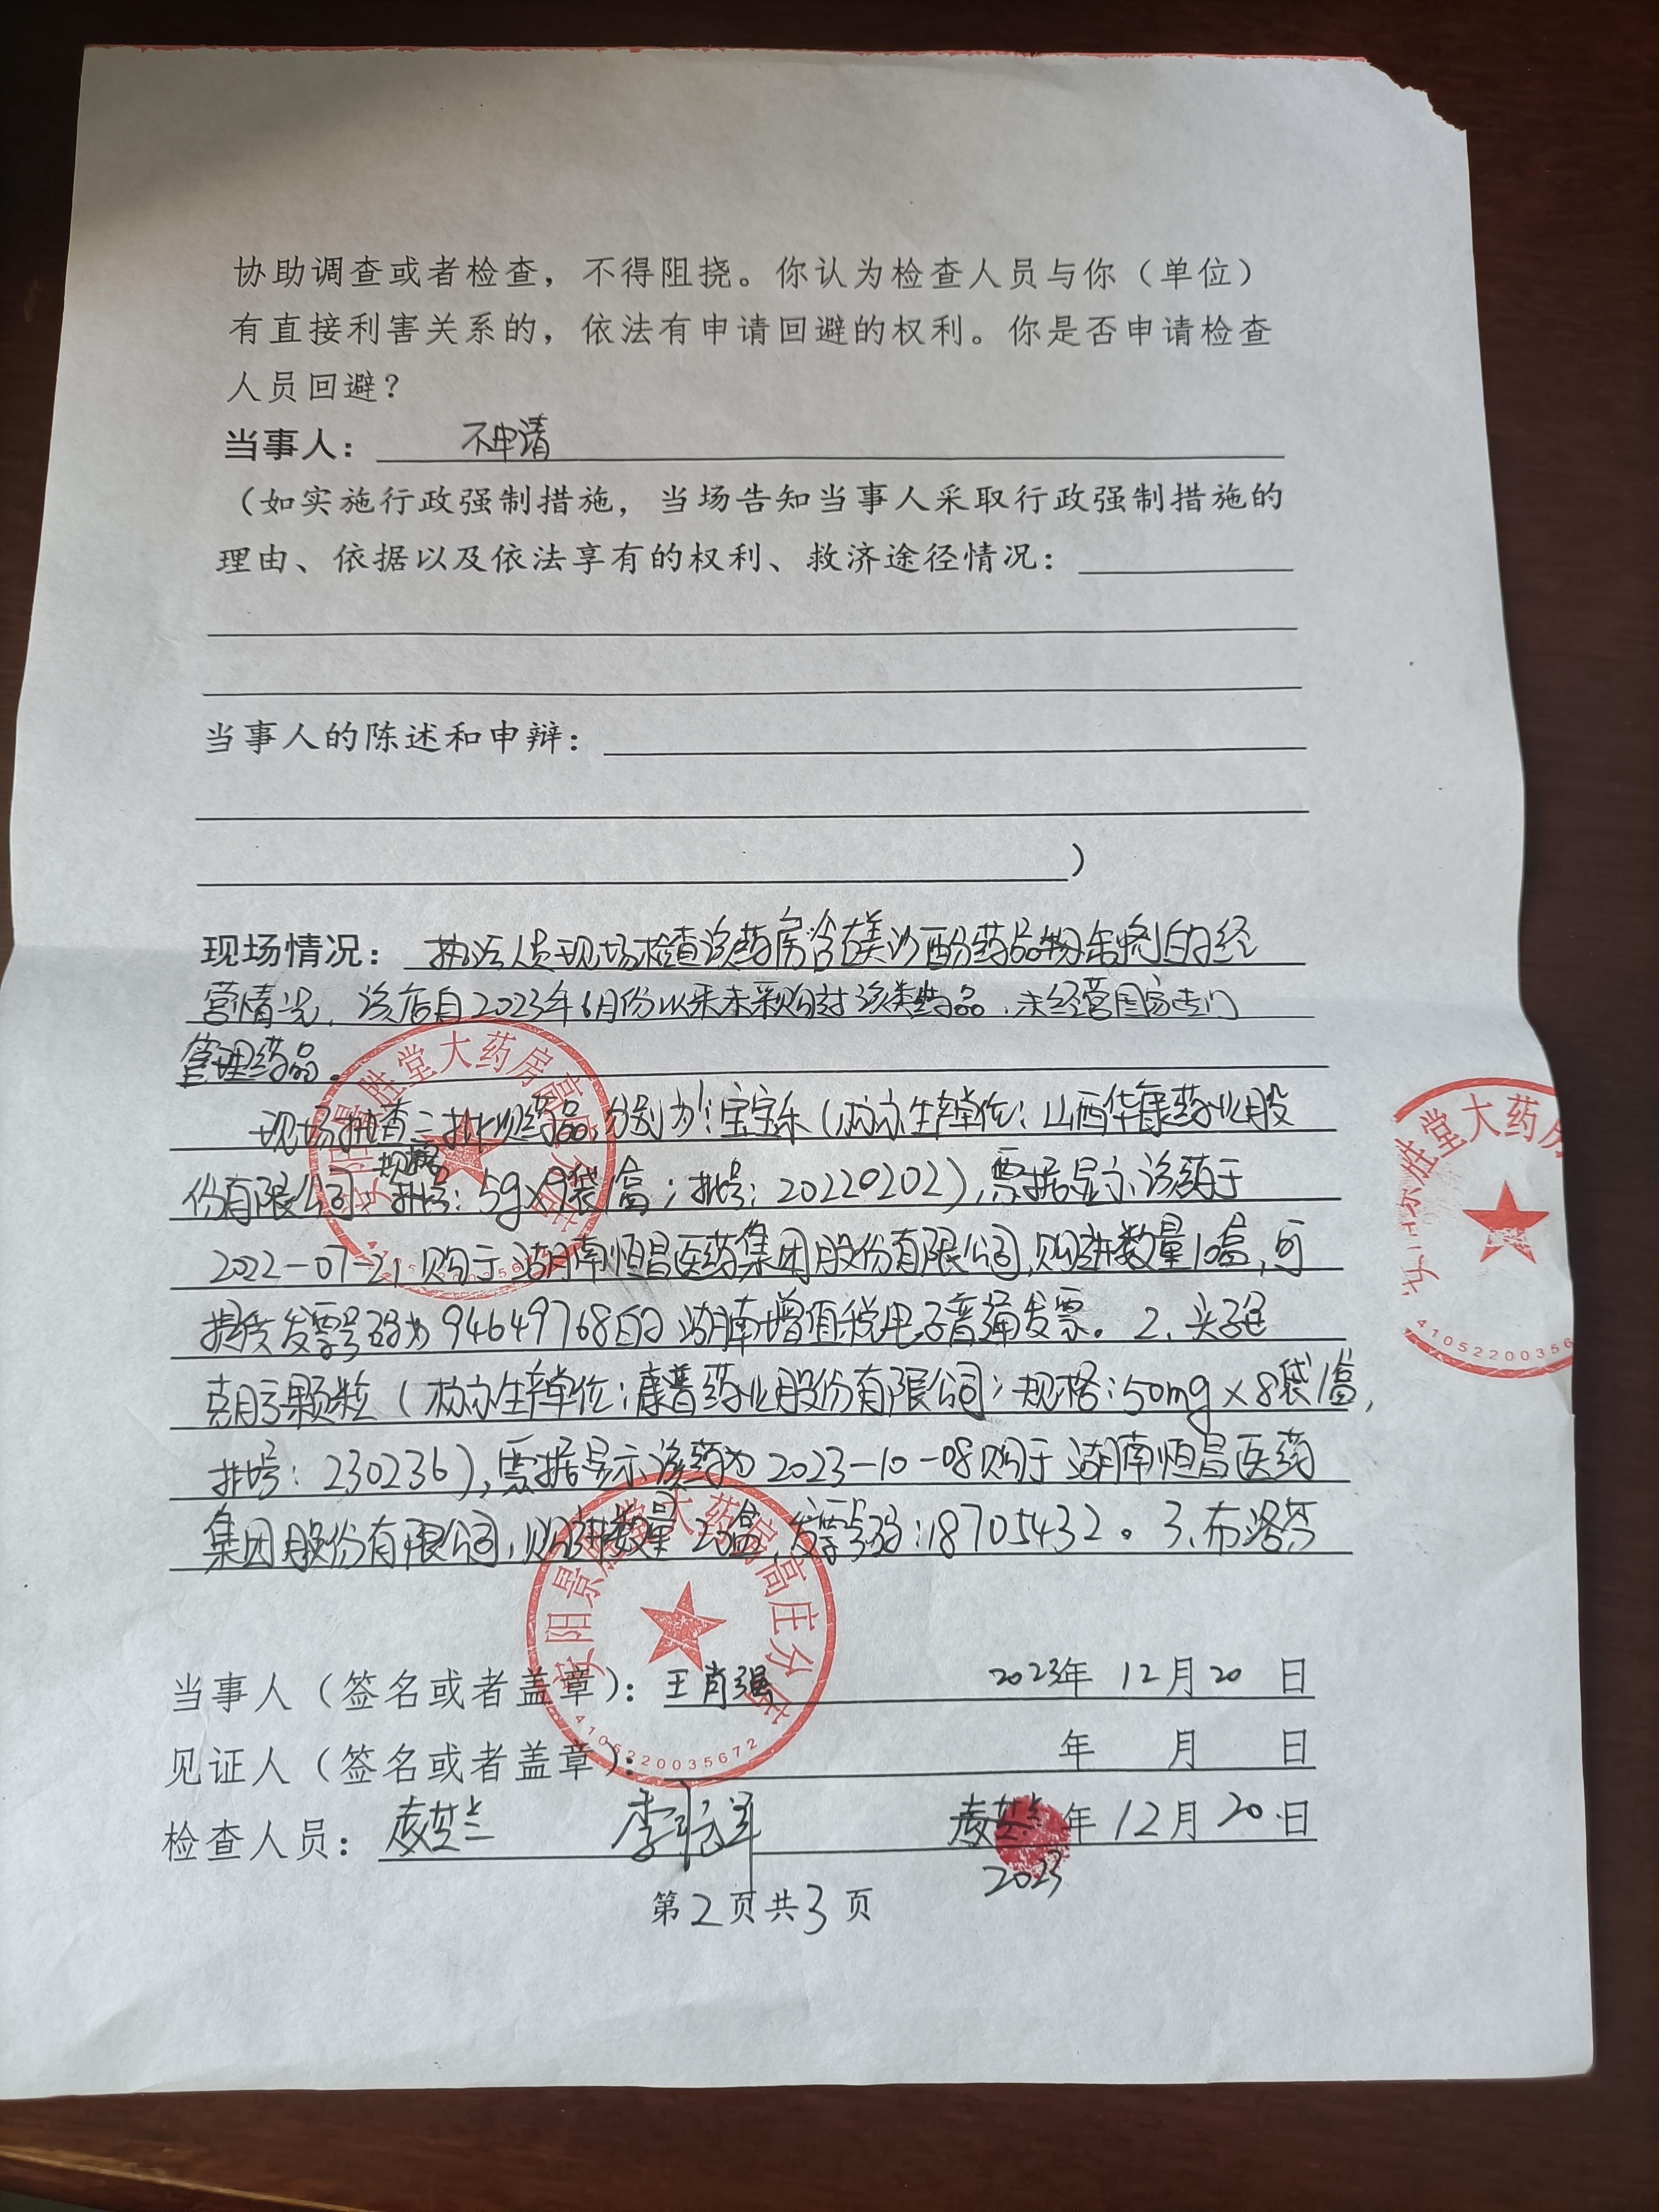 协助调查或者检查，不得阻挠。你认为检查人员与你（单位）
有直接利害关系的，依法有申请回避的权利。你是否申请检查
人员回避？
当事人：不申请
（如实施行政强制措施，当场告知当事人采取行政强制措施的
理由、依据以及依法享有的权利、救济途径情况：
当事人的陈述和申辩：
）
现场情况：执法人员现场检查该药房含右美沙芬药品制剂的经
营情况，该店自2023年6月份以来未采购过该类药品，未经营国家专门
管理药品。
现场抽查三批次药品，分别为：宝宝乐（标示生产单位：山西华康药业股
份有限公司；规格：5g×9袋/盒；批号：20220202），票据显示该药于
2022-07-21购于湖南恒昌医药集团股份有限公司，购进数量10盒，可
提供发票号码为94649768的湖南增值税电子普通发票。2、头孢
克肟颗粒（标示生产单位：康普药业股份有限公司；规格：50mg×8袋/盒，
批号：230236），票据显示该药为2023-10-08购于湖南恒昌医药
集团股份有限公司，购进数量20盒，发票号码：18705432。3、布洛芬
安阳景胜堂大药房高庄分店
4105220035672
当事人（签名或者盖章）：王肖强 2023年12月20日
见证人（签名或者盖章）： 年 月 日
检查人员： 年12月20日
2023
第2页共3页
胜堂大药房
4105220035